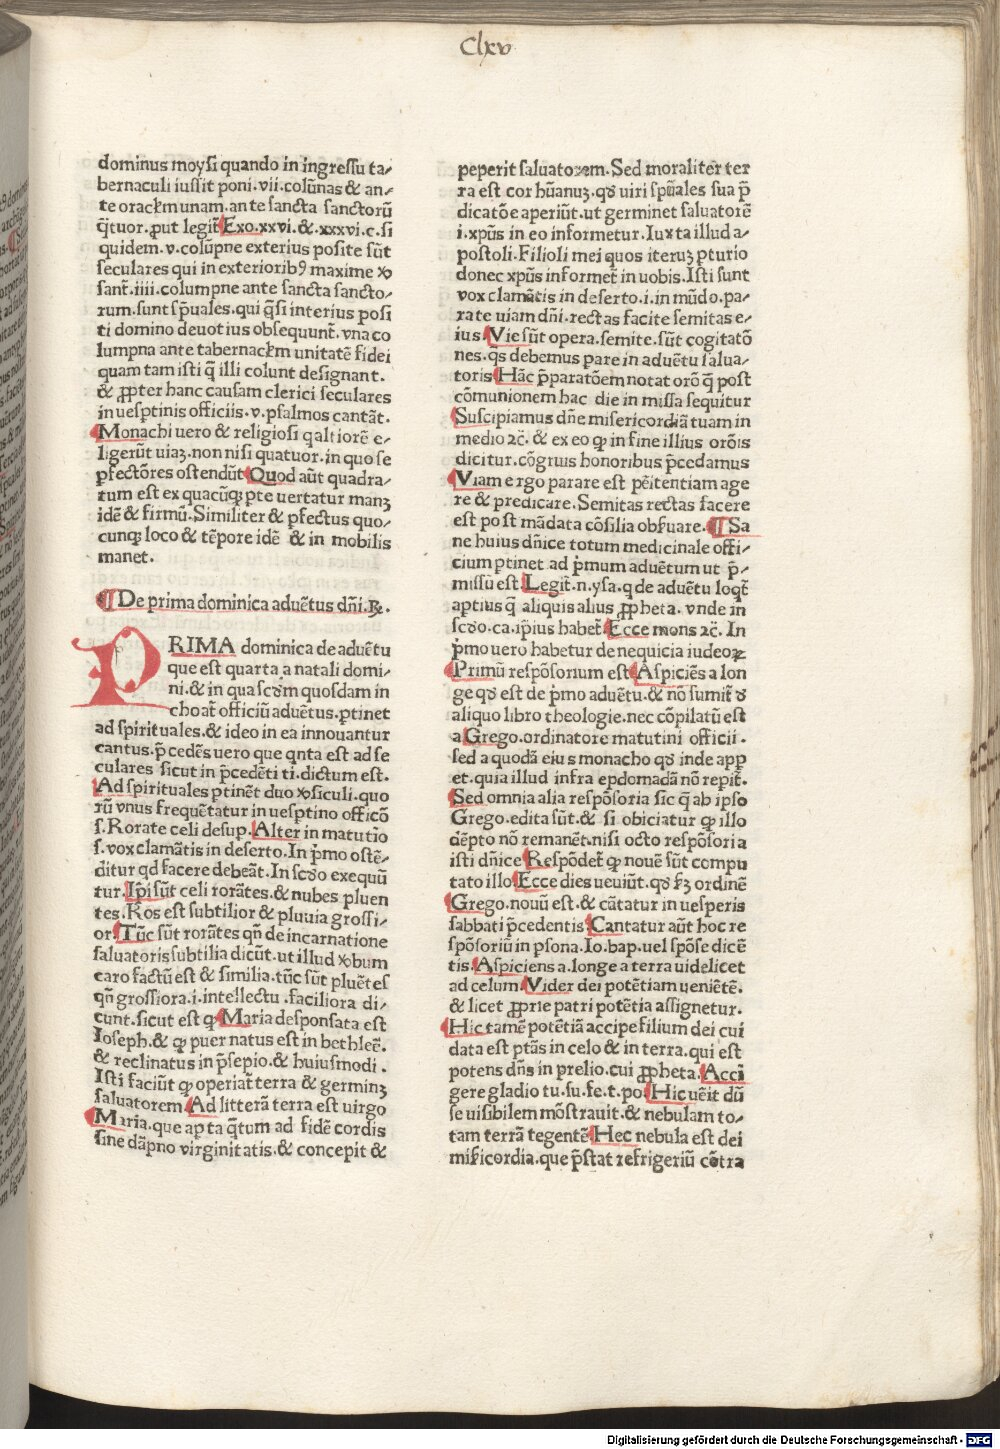 Clxv
dominus moysi quando in ingressu ta⸗
bernaculi iussit poni.vii.colūnas & an⸗
te oracl'm unam.ante sancta sanctorū
q̄tuor.ꝓut legit̄ Exo.xxvi.&.xxxvi.c.si
quidem.v.colūpne exterius posite sūt
seculares qui in exteriorib9 maxime ꝟ
sant̄.iiii.columpne ante sancta sancto⸗
rum.sunt sp̄uales.qui q̄si interius posi
ti domino deuotius obsequunt̄.vna co
lumpna ante tabernacl'm unitatē fidei
quam tam isti q̄ illi colunt designant.
& ꝓpter hanc causam clerici seculares
in uesptinis officiis.v.psalmos cantāt.
Monachi uero & religiosi q altiorē e⸗
ligerūt uiaꝫ.non nisi quatuor.in quo se
pfectōres ostendūt Quod aūt quadra⸗
tum est ex quacūqꝫ pte uertatur manꝫ
idē & firmū.Similiter & pfectus quo⸗
cunqꝫ loco & tēpore idē & in mobilis
manet.
¶De prima dominica aduētus dn̄i.R.
PRIMA dominica de aduētu
que est quarta a natali domi⸗
ni.& in qua scd'm quosdam in
choat̄ officiū aduētus.ptinet
ad spirituales.& ideo in ea innouantur
cantus.p̄cedēs uero que qnta est ad se
culares sicut in p̄cedēti ti.dictum est.
Ad spirituales ptinēt duo ꝟsiculi.quo
rū vnus frequētatur in uesptino officō
s.Rorate celi desup.Alter in matutīo
s.vox clamātis in deserto.In p̄mo ostē⸗
ditur qd facere debeāt.In scd'o exequū
tur.Ip̄i sūt celi rorātes.& nubes pluen
tes.Ros est subtilior & pluuia grossi⸗
or.Tūc sūt rorātes qn̄ de incarnatione
saluatoris subtilia dicūt.ut illud ꝟbum
caro factū est & similia.tūc sūt pluētes
qn̄ grossiora.i.intellectu.faciliora di⸗
cunt.sicut est ꝙ Maria desponsata est
Ioseph.& ꝙ puer natus est in bethleē.
& reclinatus in p̄sepio.& huiusmodi.
Isti faciūt ꝙ operiat̄ terra & germinꝫ
saluatorem Ad litterā terra est virgo
Maria.que apta q̄tum ad fidē cordis
sine dāpno virginitatis.& concepit &
peperit saluatorem.Sed moraliter ter
ra est cor hūanuꝫ.qd' uiri sp̄uales sua p̄
dicatōe aperiūt.ut germinet saluatorē
i.xp̄us in eo informetur.Iuxta illud a⸗
postoli.Filioli mei quos iteruꝫ pturio
donec xp̄us informet̄ in uobis.Isti sunt
vox clamātis in deserto.i.in mūdo.pa⸗
rate uiam dn̄i.rectas facite semitas e⸗
ius.Vie sūt opera.semite.sūt cogitatō
nes.q̄s debemus pare in aduētu salua⸗
toris Hāc p̄paratōem notat orō q̄ post
cōmunionem hac die in missa sequitur
Suscipiamus dn̄e misericordiā tuam in
medio ⁊c̄.& ex eo ꝙ in fine illius orōis
dicitur.cōgruis honoribus p̄cedamus
Viam ergo parare est pēitentiam age
re & predicare.Semitas rectas facere
est post mādata cōsilia obseruare.¶Sa
ne huius dn̄ice totum medicinale offi⸗
cium ptinet ad p̄mum aduētum ut p̄⸗
missū est.Legit̄.n.ysa.q de aduētu loqt̄
aptius q̄ aliquis alius ꝓpheta.vnde in
scd'o.ca.ip̄ius habet̄ Ecce mons ⁊c̄.In
p̄mo uero habetur de nequicia iudeoꝝ
Primū respōsorium est Aspiciēs a lon
ge qd' est de p̄mo aduētu.& nō sumit̄ d'
aliquo libro theologie.nec cōpilatū est
a Grego.ordinatore matutini officii.
sed a quodā eius monacho qd' inde app
et.quia illud infra epdomadā nō repit̄.
Sed omnia alia respōsoria sic q̄ ab ipso
Grego.edita sūt.& si obiciatur ꝙ illo
dēpto nō remanēt.nisi octo respōsoria
isti dn̄ice Respōdet̄ ꝙ nouē sūt compu
tato illo.Ecce dies ueuiūt.qd' ẜꝫ ordinē
Grego.nouū est.& cātatur in uesperis
sabbati p̄cedentis Cantatur aūt hoc re
spōsoriū in psona.Io.bap.uel spōse dicē
tis.Aspiciens a.longe a terra uidelicet
ad celum.Vider dei potētiam ueniētē.
& licet ꝓprie patri potētia assignetur.
Hic tamē potētiā accipe filium dei cui
data est ptās in celo & in terra.qui est
potens dn̄s in prelio.cui ꝓpheta.Acci
gere gladio tu.su.fe.t.po.Hic uēit dū
se uisibilem mōstrauit.& nebulam to⸗
tam terrā tegentē Hec nebula est dei
misericordia.que p̄stat refrigeriū cōtra
Digitalisierung gefördert durch die Deutsche Forschungsgemeinschaft - DFG